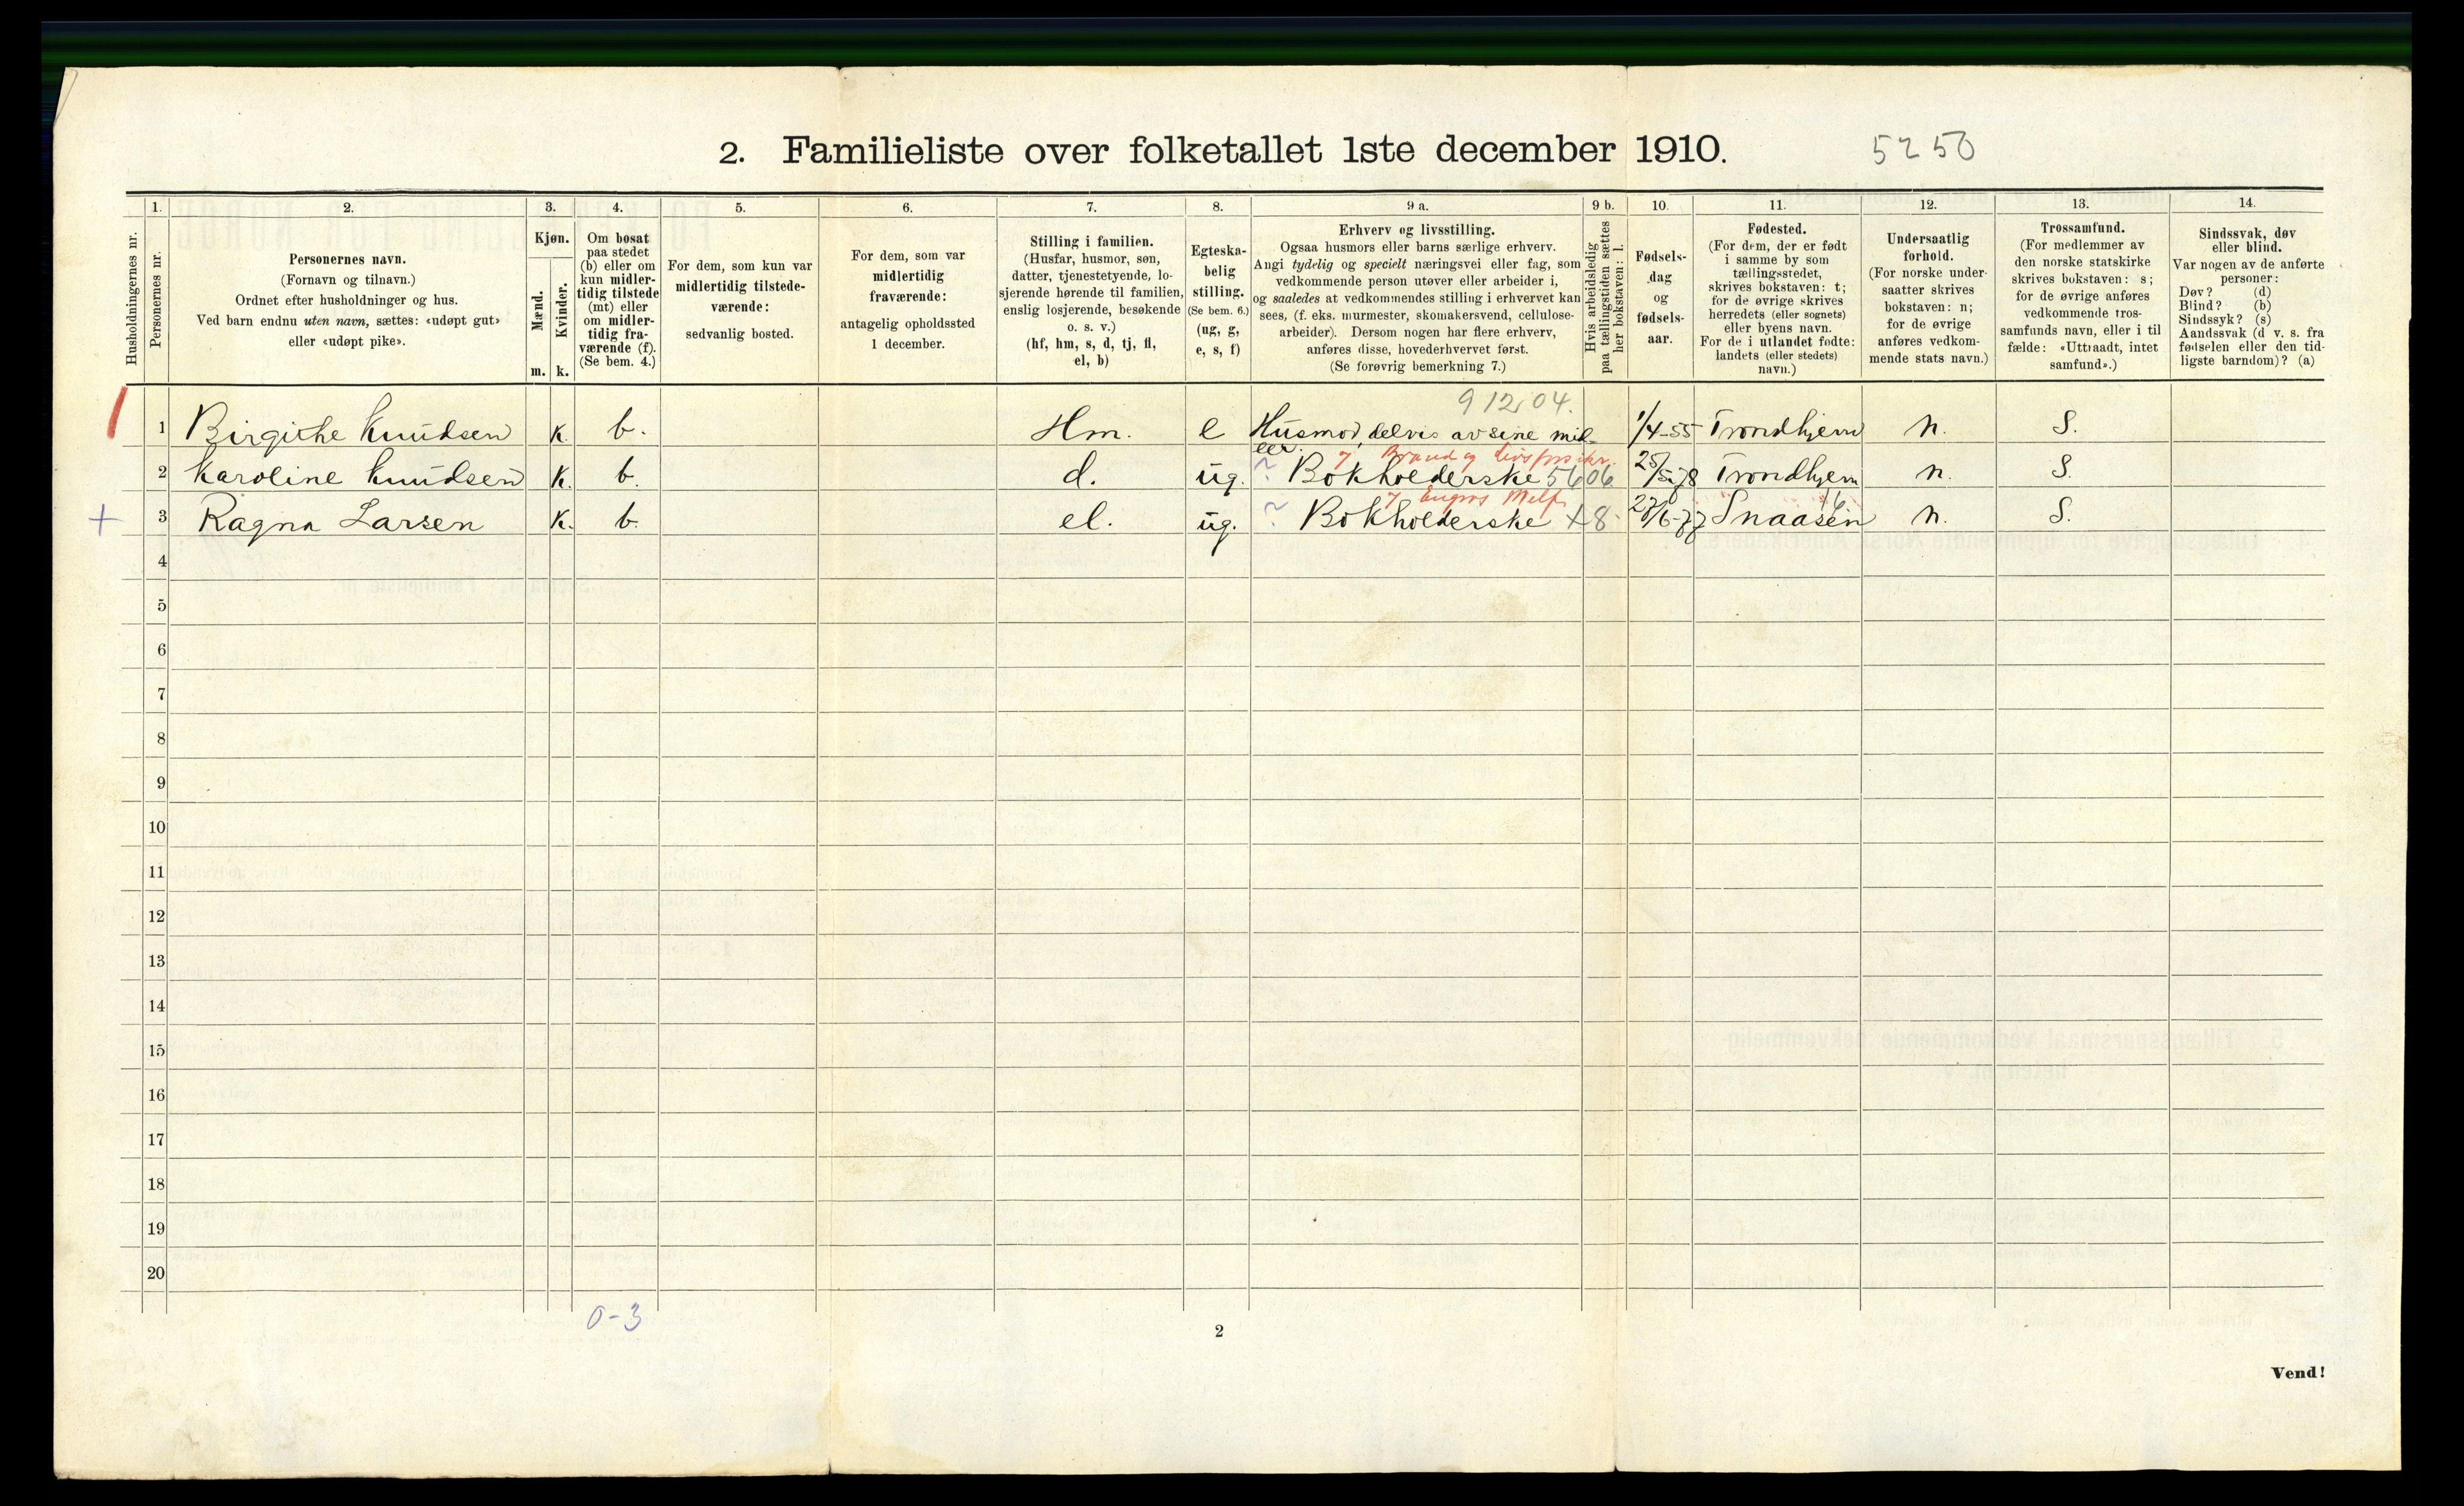 2. Familieliste over folketallet 1ste december 1910.
5250
Husholdningernes nr.
1.
Personernes nr.
2.
Personernes navn.
(Fornavn og tilnavn.)
Ordnet efter husholdninger og hus.
Ved barn endnu uten navn, sættes: «udøpt gut»
eller «udøpt pike».
3.
Kjøn.
Mænd.
Kvinder.
m. k.
4.
Om bosat
paa stedet
(b) eller om
kun midler-
tidig tilstede
(mt) eller
om midler-
tidig fra-
værende (f).
(Se bem. 4.)
5.
For dem, som kun var
midlertidig tilstede-
værende:
sedvanlig bosted.
6.
For dem, som var
midlertidig
fraværende:
antagelig opholdssted
1 december.
7.
Stilling i familien.
(Husfar, husmor, søn,
datter, tjenestetyende, lo-
sjerende hørende til familien,
enslig losjerende, besøkende
o. s. v.)
(hf, hm, s, d, tj, fl,
el, b)
8.
Egteska-
belig
stilling.
(Se bem. 6.)
(ug, g,
e, s, f)
9 a.
Erhverv og livsstilling.
Ogsaa husmors eller barns særlige erhverv.
Angi tydelig og specielt næringsvei eller fag, som
vedkommende person utøver eller arbeider i,
og saaledes at vedkommendes stilling i erhvervet kan
sees, (f. eks. murmester, skomakersvend, cellulose-
arbeider). Dersom nogen har flere erhverv,
anføres disse, hovederhvervet først.
(Se forøvrig bemerkning 7.)
9 b.
Hvis arbeidsledig
paa tællingstiden sættes
her bokstaven: l.
10.
Fødsels-
dag
og
fødsels-
aar.
11.
Fødested.
(For dem, der er født
i samme by som
tællingsstedet,
skrives bokstaven: t;
for de øvrige skrives
herredets (eller sognets)
eller byens navn.
For de i utlandet fødte:
landets (eller stedets)
navn.)
12.
Undersaatlig
forhold.
(For norske under-
saatter skrives
bokstaven: n;
for de øvrige
anføres vedkom-
mende stats navn.)
13.
Trossamfund.
(For medlemmer av
den norske statskirke
skrives bokstaven: s;
for de øvrige anføres
vedkommende tros-
samfunds navn, eller i til
fælde: «Uttraadt, intet
samfund».)
14.
Sindssvak, døv
eller blind.
Var nogen av de anførte
personer:
Døv? (d)
Blind? (b)
Sindssyk? (s)
Aandssvak (d v. s. fra
fødselen eller den tid-
ligste barndom)? (a)
9 12 04.
1 Birgithe Knudsen K. b. Hm. e Husmor, delvis av sine mid- 1/4-55 Trondhjem n. S.
ler.
Brand og livsforsikr.
2 Karoline Knudsen K. b. d. ug. Bokholderske 5606 25/5-78 Trondhjem n. S.
Engros
3 Ragna Larsen K. b. el. ug. Bokholderske Snaasen n. S.
4
5
6
7
8
9
10
11
12
13
14
15
16
17
18
19
20
0-3
2
Vend!